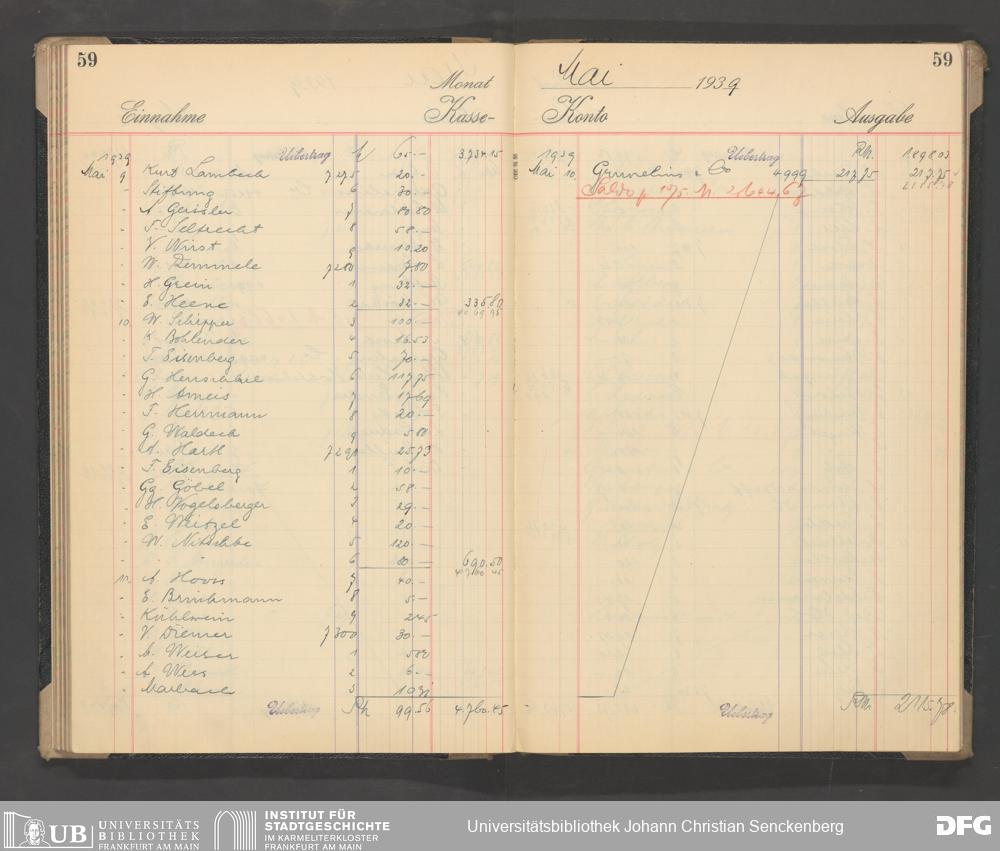 59
Monat
Einnahme
Kasse-
1939 Uebertrag 65.- 3.734.15
Mai 9 Kurt Lambach 7275 20.-
- Stiftung 6 30.-
- A. Geissler 7 80.80
- 8 58.-
- V. Wirst 9 10.20
- W. 7280 7.80
- H. Grein 1 32.-
- E. Heene 2 32.- 335.80
10 W. Schipper 3 100.-
- K. Bohlender 4 16.53
- T. Eisenberg 5 70.-
- G. 6 117.75
- H. Ameis 7 17.69
- F. Herrmann 8 20.-
- G. Waldeck 9 5.80
- A. Hartl 7290 25.73
- T. Eisenberg 1 10.-
- Gg. Göbel 2 58.-
- H. Vogelsberger 3 29.-
- E. Weitzel 4 20.-
- W. Nitschke 5 120.-
- 6 80.- 690.50
11 A. 7 40.-
- E. Brinkmann 8 5.-
- Kühlwein 9 2.45
- V. Diemer 7300 30.-
- A. Weiser 1
- A. Weis 2 6.-
- Maibach 3
Uebertrag 99.56 4.760.45
59
Mai 1939
Konto
Ausgabe
1939 Uebertrag Rm. 1.898.03
Mai 10. Grunelius & Co 4999 217.75 217.75
2115.78
Saldo
Uebertrag RM. 2115.78.
UB UNIVERSITÄTS
BIBLIOTHEK
FRANKFURT AM MAIN
INSTITUT FÜR
STADTGESCHICHTE
IM KARMELITERKLOSTER
FRANKFURT AM MAIN
Universitätsbibliothek Johann Christian Senckenberg
DFG